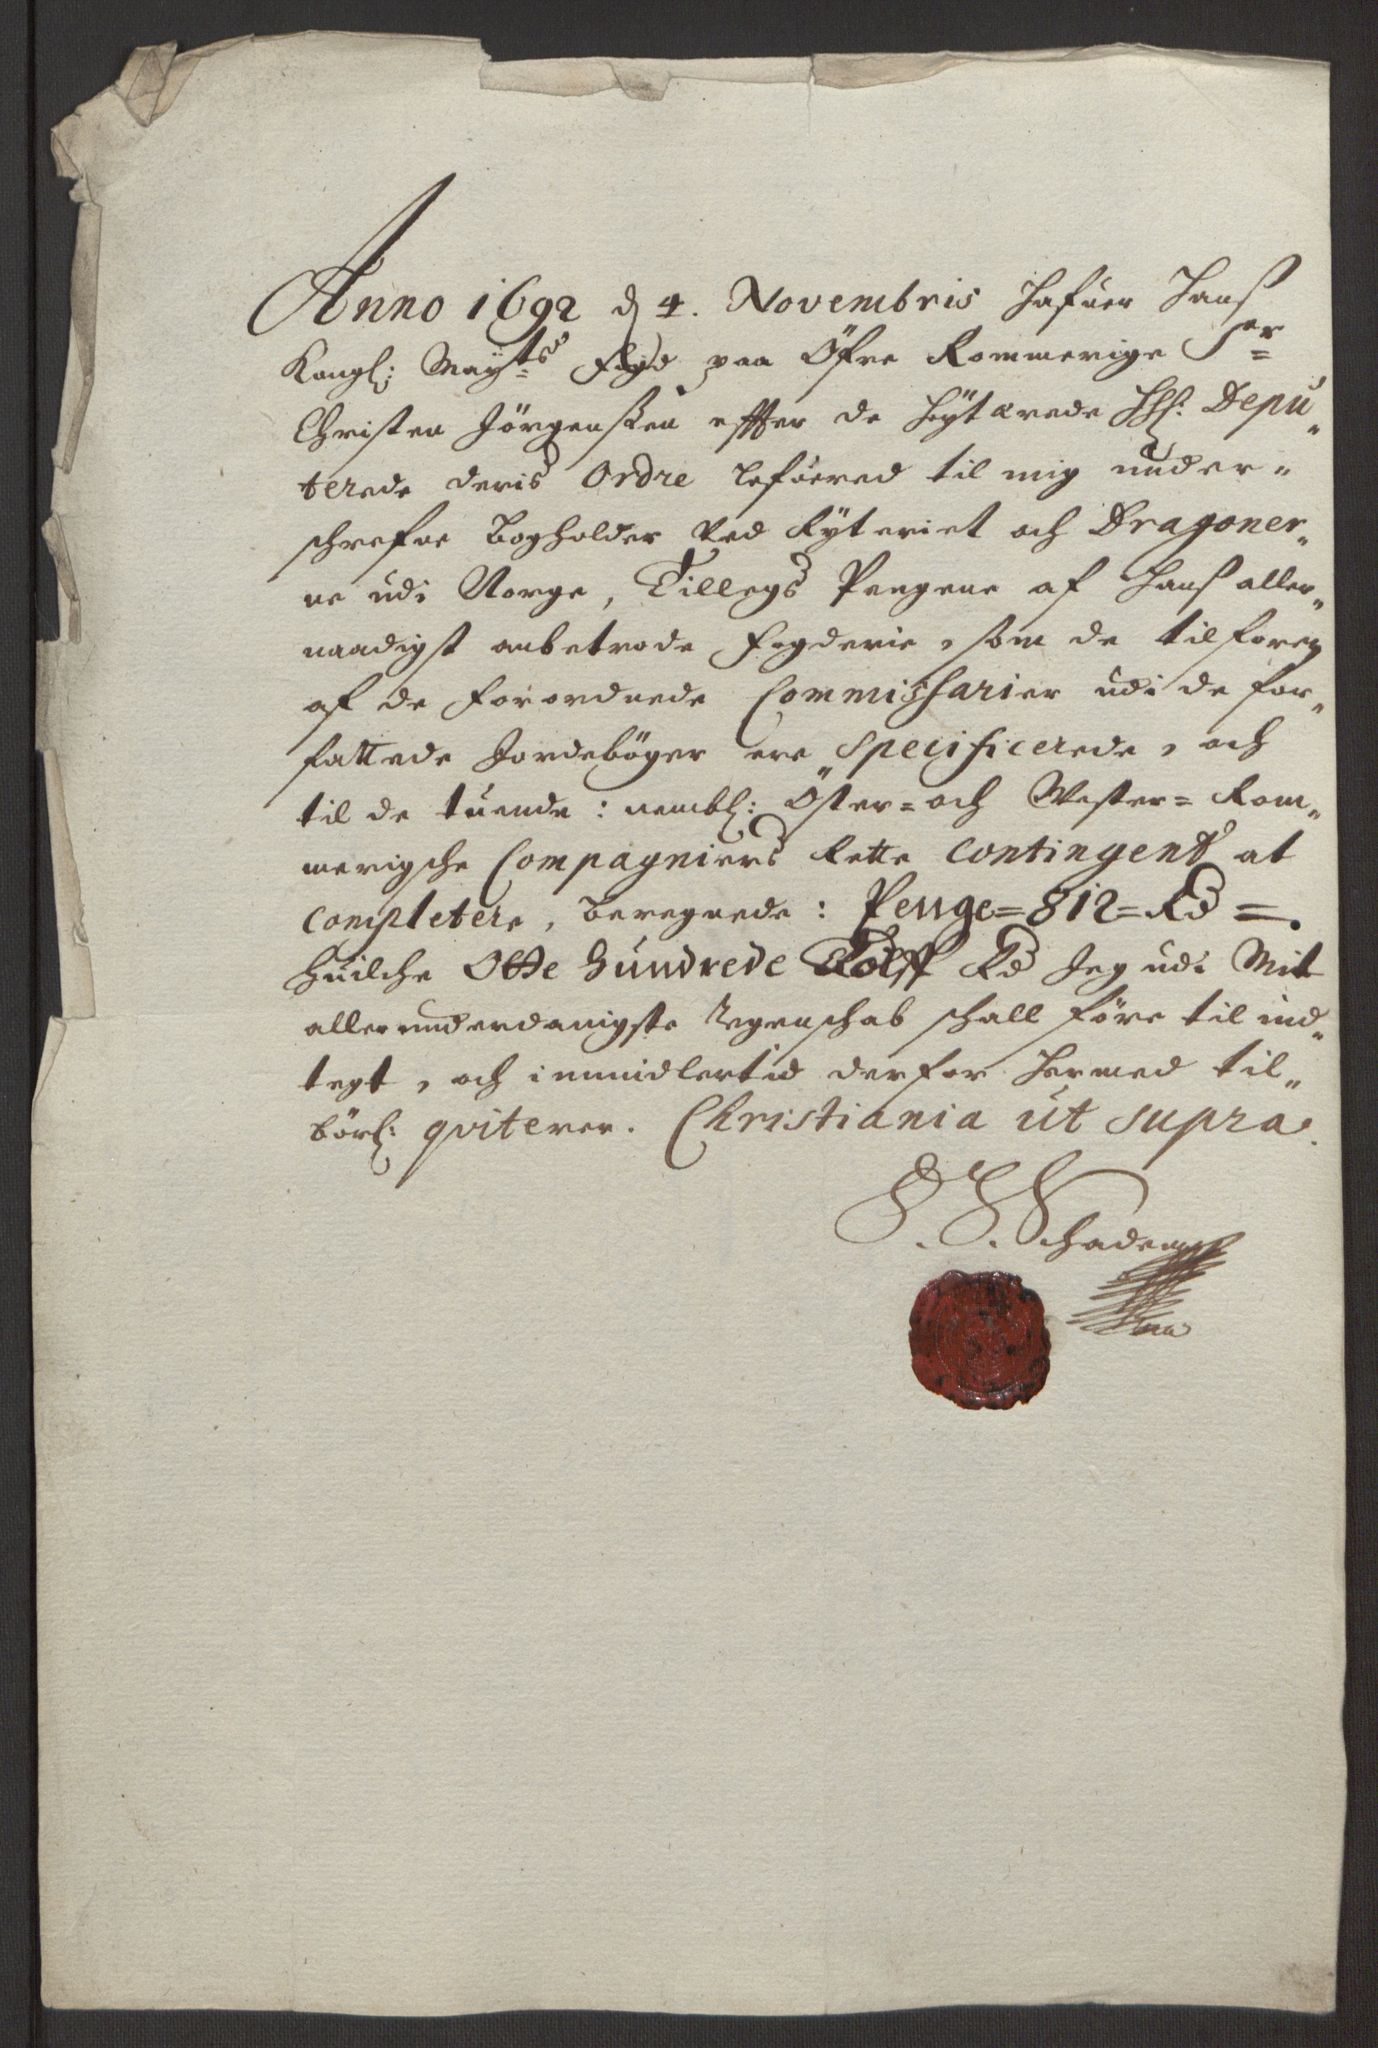 Anno 1692 d 4. Novembris hafuer Hans
Kongl: Mayts Fogd paa Öfre Rommerige Sr
Christen Jörgenssen effter de höytærede HH: Depu„
terede deris Ordre lefuered til mig under„
schrefne Bogholder ved Rytteriet och Dragoner„
ne udi Norge, Tillegs Pengene af Hans aller„
naadigst anbetrode Fogderie, som de tilforen
af de forordnede Commissarier udi de for„
fattede Jordeböger ere specificerede, och
til de tuende: nembl: Öster= och Wester= Rom„
merigsche Compagniers Rette Contingent at
completere, beregnede: Penge=812=Rd=.
huilche Otte Hundrede Tolff Rd Jeg udi Mit
allerunderdanigste Regenschab schall före til ind„
tegt, och immidlertid derfor hermed til„
börl: qviterer. Christiania ut supra.
Schade